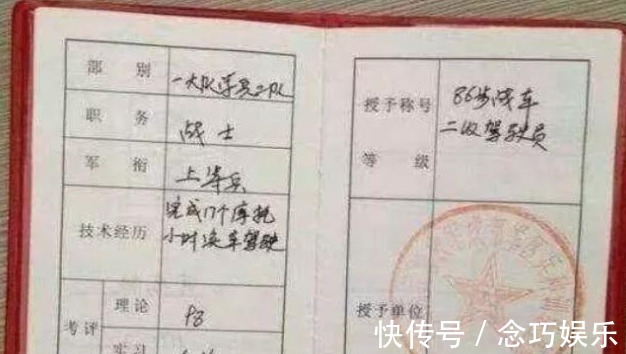 部别 一大队学员二队
职务 战士
军衔 上等兵
技术经历 完成17个摩托
小时 车驾驶
考评 理论 98
实习
授予称号 86步战车
等级 二级驾驶员
授予单位
快传号 / 念巧娱乐